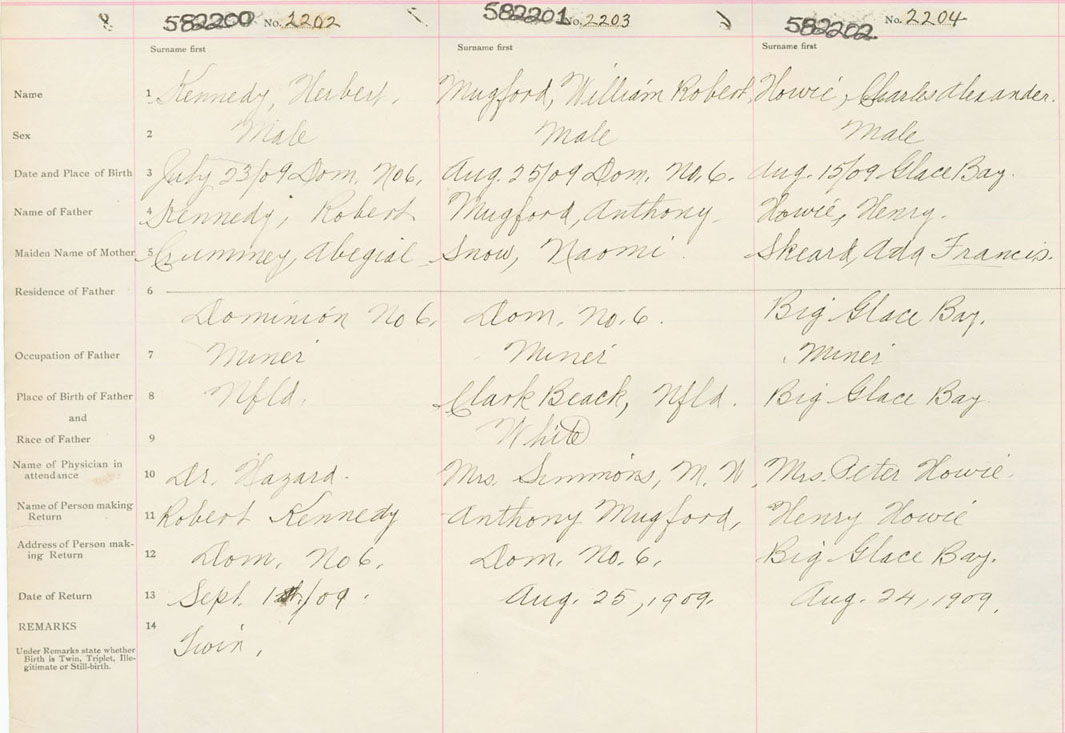 582200 No. 2202 582201 No. 2203 582202 No. 2204
Surname first Surname first Surname first
Name 1 Kennedy, Herbert. Mugford, William Robert, Howie, Charles Alexander.
Sex 2 Male Male Male
Date and Place of Birth 3 July 23/09 Dom. No 6. Aug. 25/09 Dom. No. 6. Aug. 15/09 Glace Bay.
Name of Father 4 Kennedy, Robert Mugford, Anthony. Howie, Henry.
Maiden Name of Mother 5 Abegial Snow, Naomi Skeard, Ada Francis.
Residence of Father 6
Dominion No 6. Dom. No. 6. Big Glace Bay.
Occupation of Father 7 Miner Miner Miner
Place of Birth of Father 8 Nfld. Clark Beack, Nfld. Big Glace Bay
and
Race of Father 9 White
Name of Physician in
attendance 10 Dr. Hazard. Mrs. Simmons, M. W. Mrs. Peter Howie.
Name of Person making
Return 11 Robert Kennedy Anthony Mugford, Henry Howie
Address of Person mak-
ing Return 12 Dom. No 6. Dom. No. 6. Big Glace Bay.
Date of Return 13 Sept. 1st/09. Aug. 25, 1909. Aug. 24, 1909.
REMARKS 14
Twin.
Under Remarks state whether
Birth is Twin, Triplet, Ille-
gitimate or Still-birth.